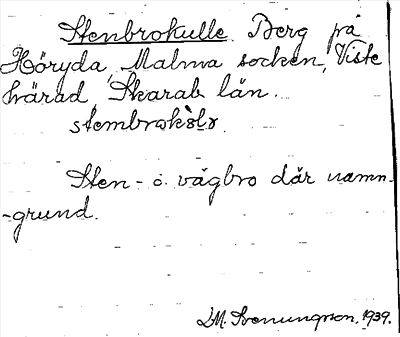 Stenbrokulle. Berg på
Höryda, Malma socken, Viste
härad, Skarab. län.
stembrokolo.
Sten- o. vägbro där namn-
-grund.
D.M. Svenungsson. 1939.